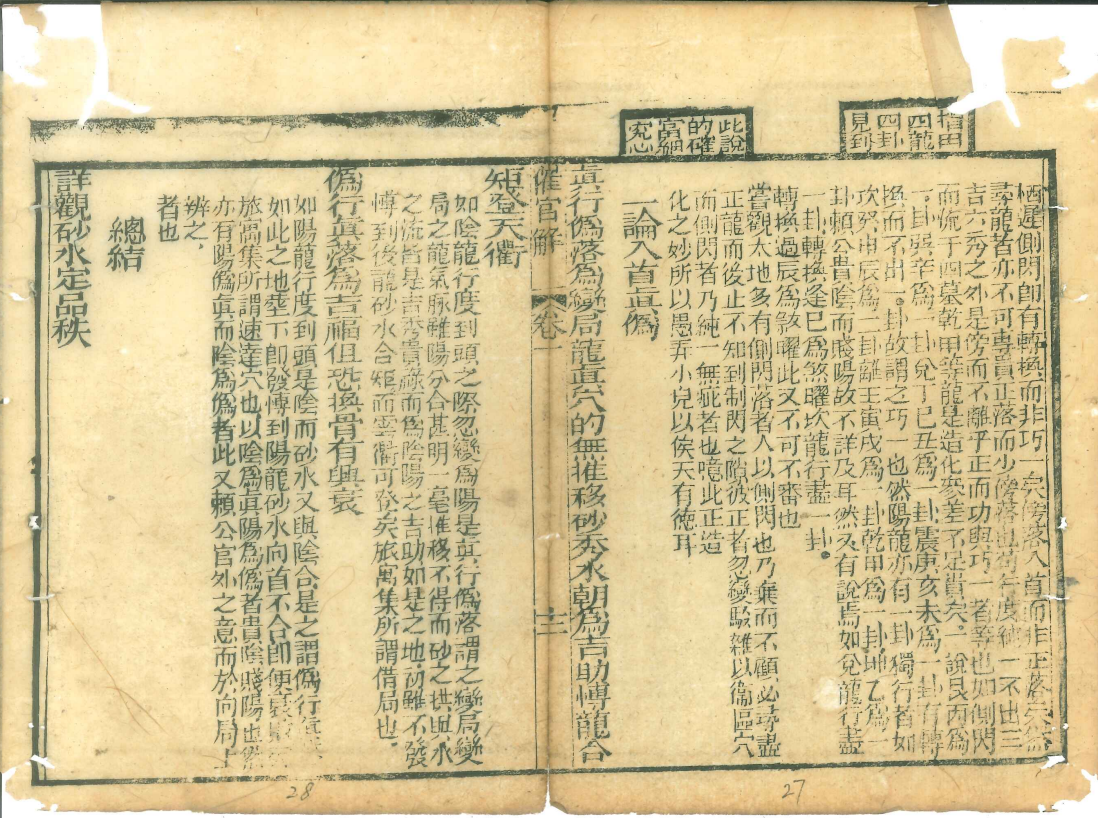 指田
四龍
四卦
見到
此說
的確
當細
究心
栖遲側閃卽有轉換而非巧一宂傍落入首而非正落
尋龍者亦不可專貴正落而少傍落也苟行度純一不出三
吉六秀之外是傍而不離乎正而功與巧一者等也如側閃
而流于四墓乾甲等龍是造化衆差不足貴矣一說艮丙爲
一卦巽辛爲一卦兌丁巳丑爲一卦震庚亥未爲一卦有轉
換而不出一卦故謂之巧一也然陽龍亦有一卦獨行者如
坎癸申辰爲一卦離壬寅戌爲一卦乾甲爲一卦坤乙爲一
卦頼公貴陰而賤陽故不詳及耳然又有說焉如兌龍行盡
一卦轉換逢巳爲煞曜坎龍行盡一卦
轉換過辰爲煞曜此又不可不審也
嘗觀太地多有側閃落者人以側閃也乃棄而不顧必尋盡
正龍而後止不知到制閃之隙彼正者忽變駁雜以偹區穴
而側閃者乃純一無疵者也噫此正造
化之妙所以愚弄小兒以俟天有德耳
一論入首眞僞
眞行僞落爲變局龍眞穴的無推移砂秀水朝爲吉助愽龍合
催官解 卷一 十二
矩登天衢
如陰龍行度到頭之際忽變爲陽是眞行僞落謂之變局變
局之龍氣脉雖陽分合甚明一毫推移不得而砂之拱與水
之流皆是吉秀貴祿而爲陰陽之吉助如是之地初雖不發
愽到後龍砂水合矩而雲衢可登矣旅寓集所謂借局也
僞行眞落爲吉福但恐換骨有興衰
如陽龍行度到頭是陰而砂水又與陰合是之謂僞行眞
如此之地塟下卽發愽到陽龍砂水向首不合卽便衰
旅寓集所謂速達穴也以陰爲眞陽爲僞者貴陰賤陽也然
亦有陽爲眞而陰爲僞者此又頼公官外之意而於向局上
辨之
者也
總結
詳觀砂水定品秩
27
28